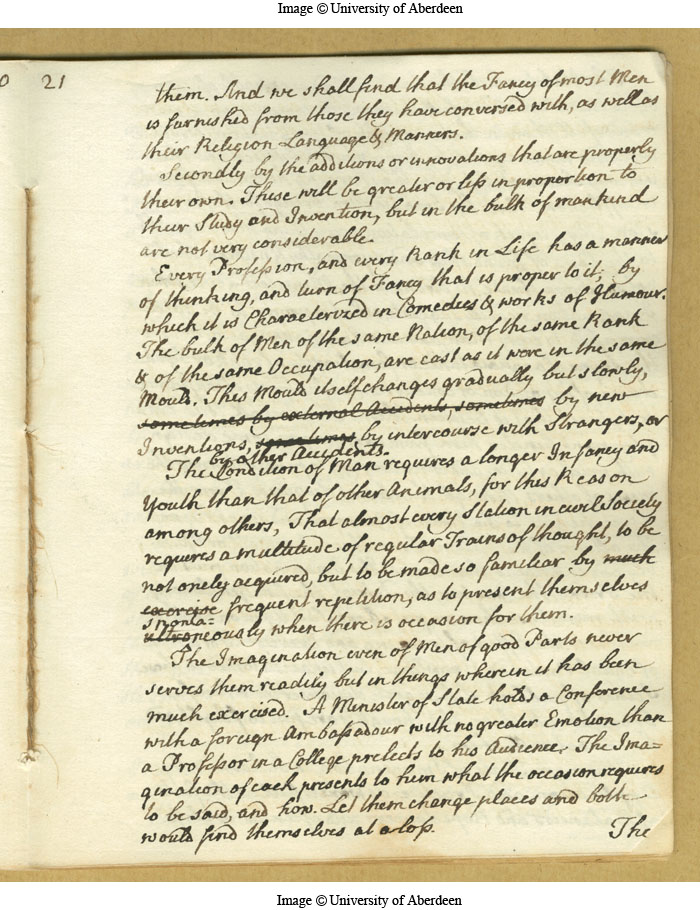 Image © University of Aberdeen
0 21
them. And we shall find that the Fancy of most Men
is furnished from those they have conversed with, as well as
their Religion Language & Manners.
Secondly by the additions or innovations that are properly
their own. These will be greater or less in proportion to
their Study and Invention, but in the bulk of mankind
are not very considerable.
Every Profession, and every Rank in Life has a manner
of thinking, and turn of Fancy that is proper to it; by
which it is Characterized in Comedies & works of Humour.
The bulk of Men of the same Nation, of the same Rank
& of the same Occupation, are cast as it were in the same
Mould. This Mould itself changes gradually but slowly,
sometimes by external Accidents, sometimes by new
Inventions, sometimes by intercourse with Strangers, or
by other Accidents.
The Condition of Man requires a longer Infancy and
Youth than that of other Animals, for this Reason
among others, That almost every Station in civil Society
requires a multitude of regular Trains of thought, to be
not onely acquired, but to be made so familiar by much
exercise frequent repetition, as to present themselves
sponta=
ultroneously when there is occasion for them.
The Imagination even of Men of good Parts never
serves them readily but in things wherein it has been
much exercised. A Minister of State holds a Conference
with a foreign Ambassadour with no greater Emotion than
a Professor in a College prelects to his Audience. The Ima=
gination of each presents to him what the occasion requires
to be said, and how. Let them change places and both
would find themselves at a loss.
The
Image © University of Aberdeen